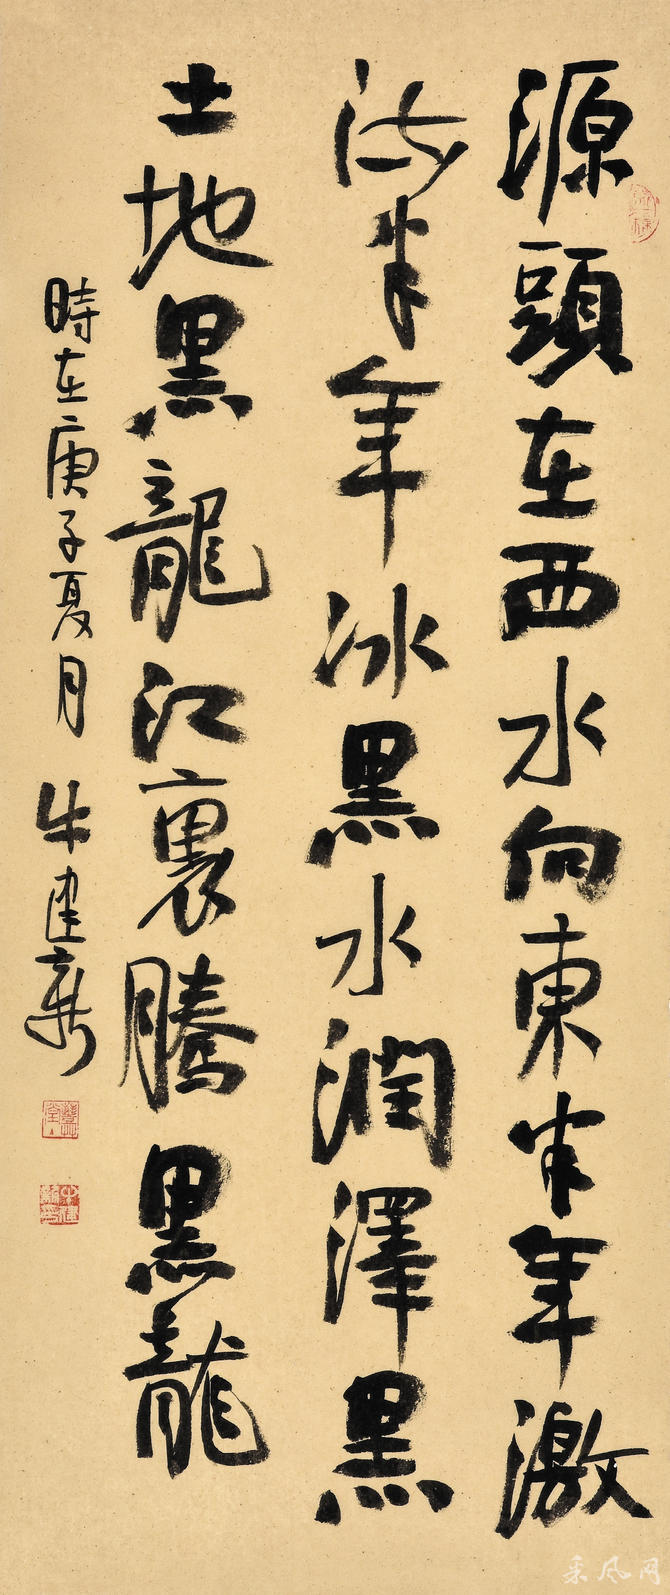 源頭在西水向東半年激
流半年冰黑水潤澤黑
土地黑龍江裏騰黑龍
時在庚子夏月 朱建新
采风网